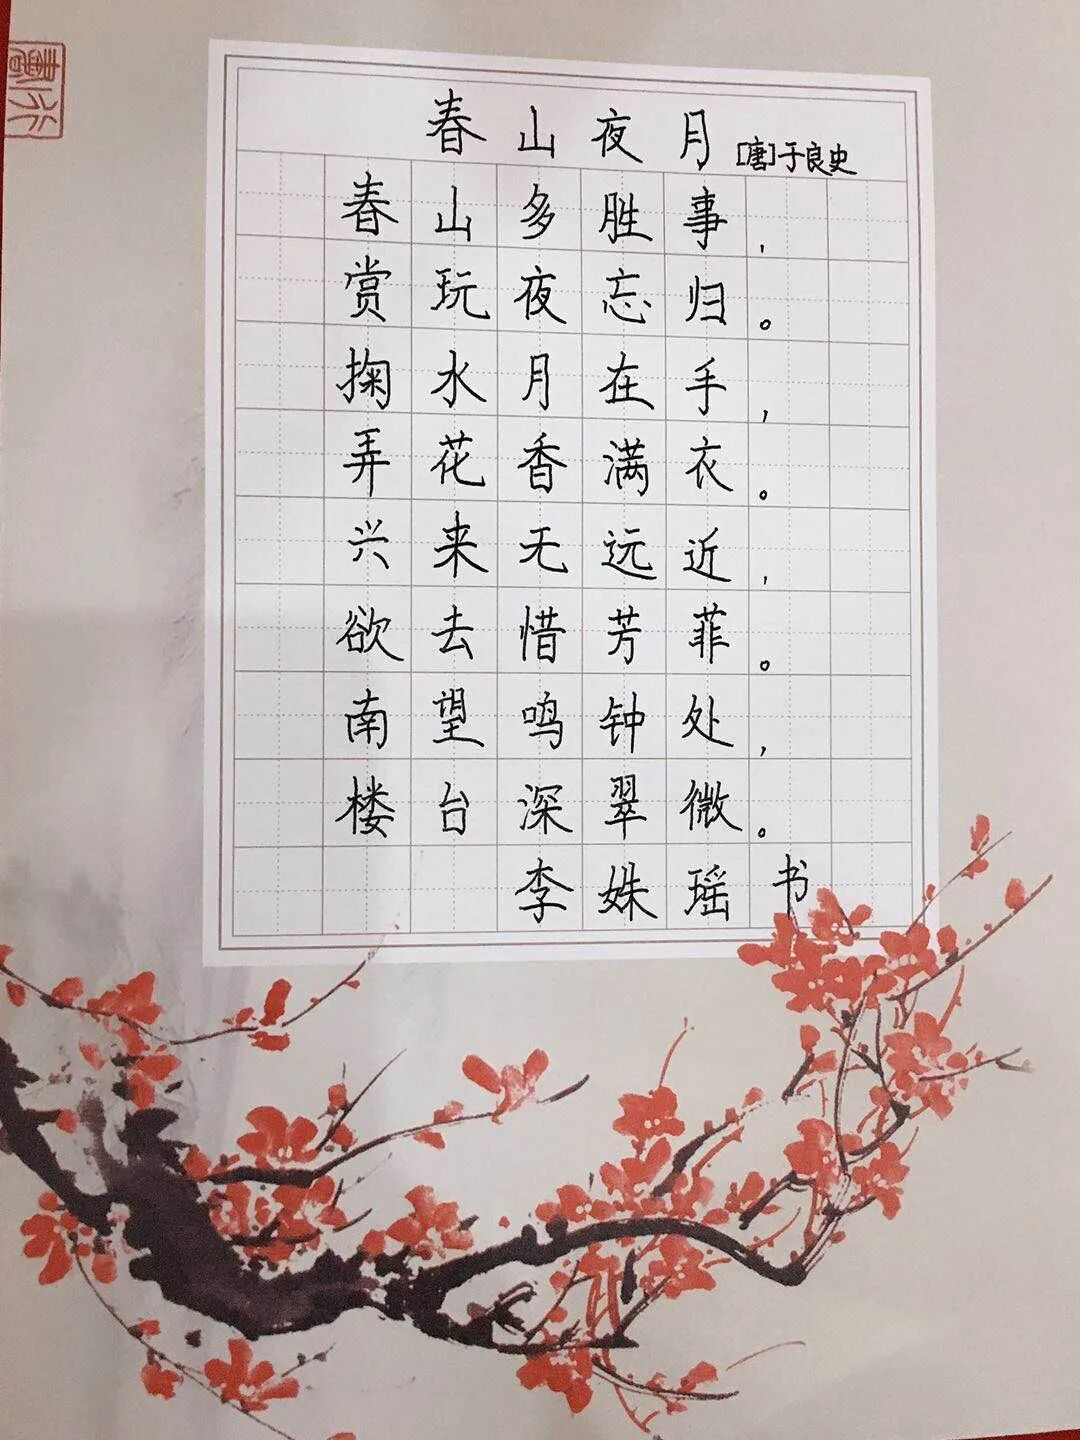 春山夜月 [唐]于良史
春山多胜事，
赏玩夜忘归。
掬水月在手，
弄花香满衣。
兴来无远近，
欲去惜芳菲。
南望鸣钟处，
楼台深翠微。
李姝瑶书